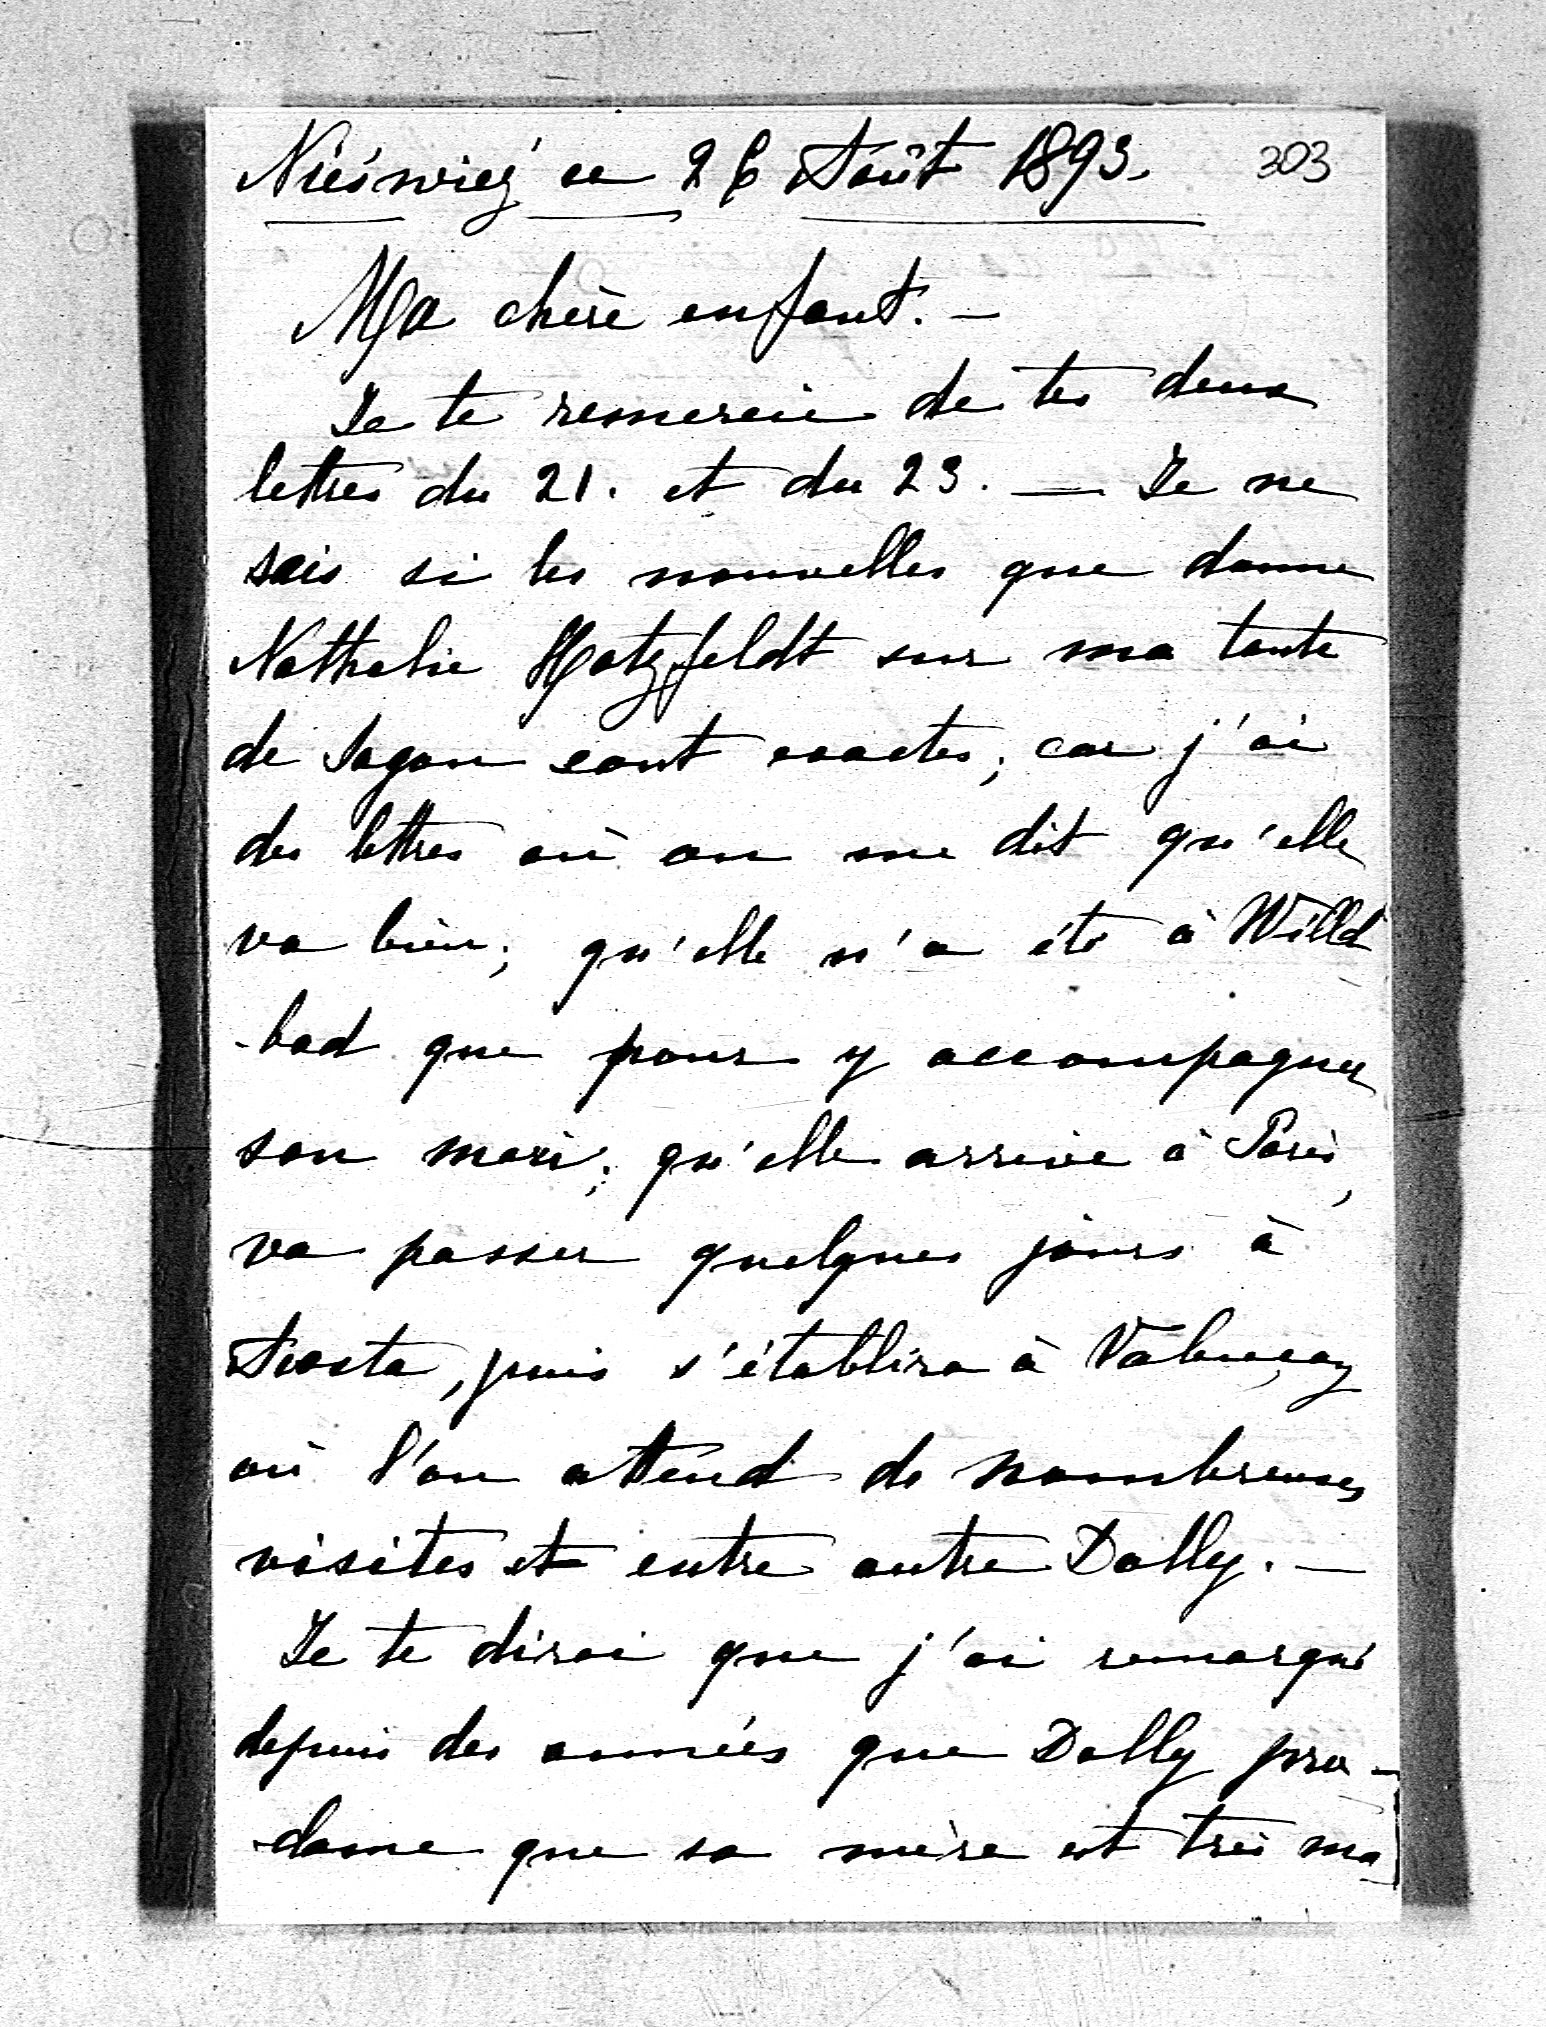 Nieświeź ce 26 Août 1893. 303
Ma chère enfant. —
Je te remercie de tes deux
lettres du 21. et du 23. — Je ne
sais si les nouvelles que donne
Nathalie Hatzfeldt sur ma tante
de Sagan sont exactes; car j'ai
des lettres où on me dit qu'elle
va bien; qu'elle n'a été à Wild
-bad que pour y accompagner
son mari; qu'elle arrive à Paris,
va passer quelques jours à
Acosta, puis s'établira à Valençay
où l'on attend de nombreuses
visites et entre autre Dolly. —
Je te dirai que j'ai remarqué
depuis des années que Dolly pro-
-clame que sa mère est très ma